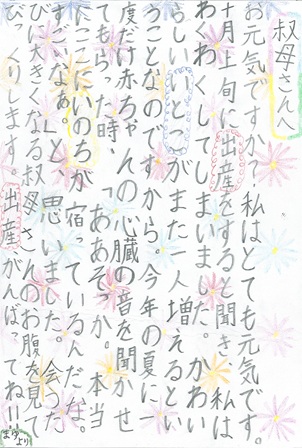 叔母さんへ
お元気ですか？私はとても元気です。
十月上旬に出産をすると聞き、私は
わくわくしてしまいました。かわい
らしいいとこがまた一人増えるとい
うことなのですから。今年の夏に一
度だけ赤ちゃんの心臓の音を聞かせ
てもらった時、「ああそっか。本当
にここにいのちが宿っているんだな。
すごいなぁ。」と、思いました。会うた
びに大きくなる叔母さんのお腹を見て
びっくりします。出産がんばってね!!
まゆより